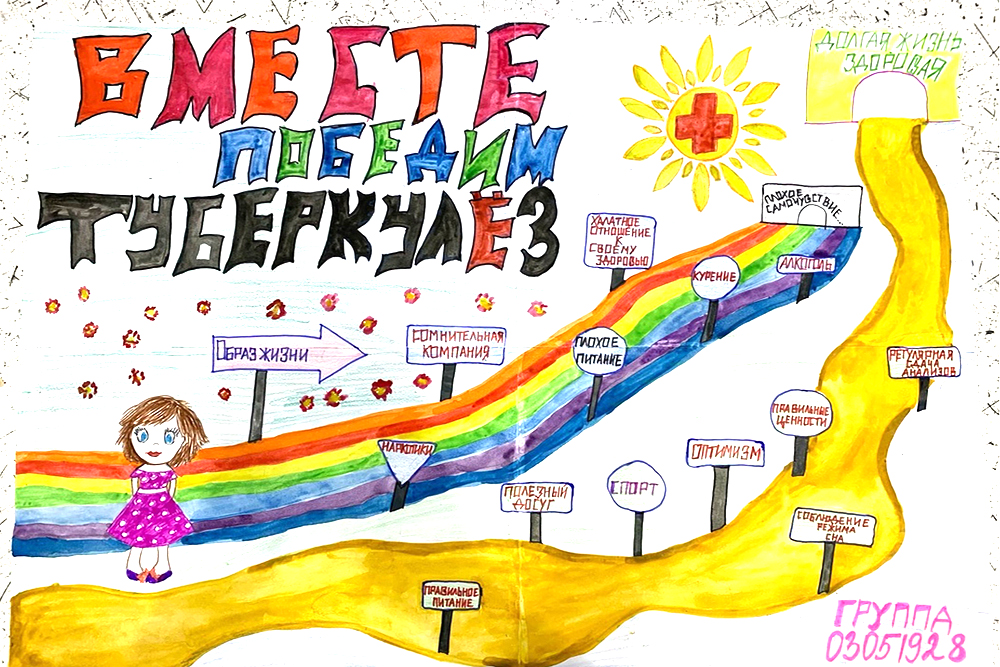 ВМЕСТЕ
ПОБЕДИМ
ТУБЕРКУЛЁЗ
ДОЛГАЯ ЖИЗНЬ
ЗДОРОВАЯ
ПЛОХОЕ
САМОЧУВСТВИЕ...
ХАЛАТНОЕ
ОТНОШЕНИЕ
К
СВОЕМУ
ЗДОРОВЬЮ
КУРЕНИЕ
АЛКОГОЛЬ
ОБРАЗ ЖИЗНИ
СОМНИТЕЛЬНАЯ
КОМПАНИЯ
ПЛОХОЕ
ПИТАНИЕ
НАРКОТИКИ
РЕГУЛЯРНАЯ
СДАЧА
АНАЛИЗОВ
ПРАВИЛЬНЫЕ
ЦЕННОСТИ
ОПТИМИЗМ
СПОРТ
ПОЛЕЗНЫЙ
ДОСУГ
СОБЛЮДЕНИЕ
РЕЖИМА
СНА
ПРАВИЛЬНОЕ
ПИТАНИЕ
ГРУППА
03051928